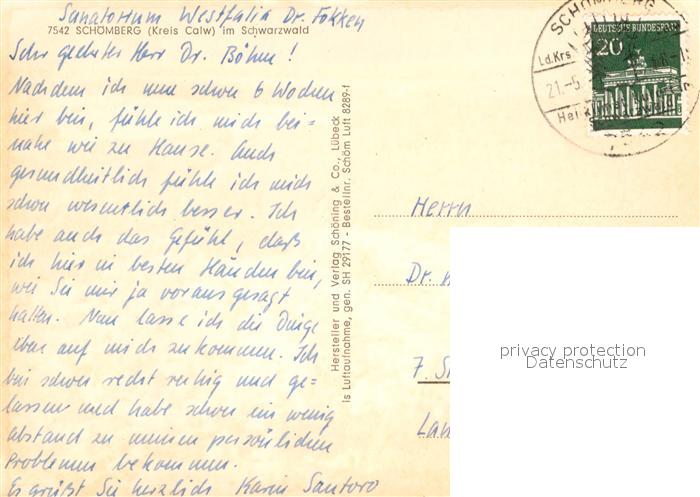 Sanatorium Westfalia Dr. Fokken
7542 SCHÖMBERG (Kreis Calw) im Schwarzwald
Sehr geehrter Herr Dr. Böhm!
Nachdem ich nun schon 6 Wochen
hier bin, fühle ich mich bei-
nahe wie zu Hause. Auch
gesundheitlich fühle ich mich
schon wesentlich besser. Ich
habe auch das Gefühl, daß
ich hier in besten Händen bin,
wie Sie mir ja vorausgesagt
hatten. Nun lasse ich die Dinge
eben auf mich zukommen. Ich
bin schon recht ruhig und ge-
lassen und habe schon ein wenig
abstand zu meinen persönlichen
Problemen bekommen.
Es grüßt Sie herzlich Karin Santoro
Hersteller und Verlag Schöning & Co., Lübeck
is Luftaufnahme, gen. SH 29177 - Bestellnr. Schöm Luft 8289-f
SCHÖMBERG
Ld.Krs
21.-5.
DEUTSCHE BUNDESPOST
20
Herrn
Dr.
7. S
Lan
privacy protection
Datenschutz